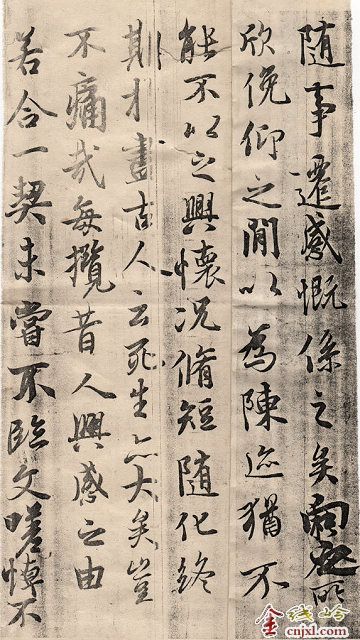 随事遷感慨係之矣向之所
欣俛仰之間以為陳迹猶不
能不以之興懷况脩短随化終
期於盡古人云死生亦大矣豈
不痛哉每攬昔人興感之由
若合一契未嘗不臨文嗟悼不
金线岭
cnjxl.com